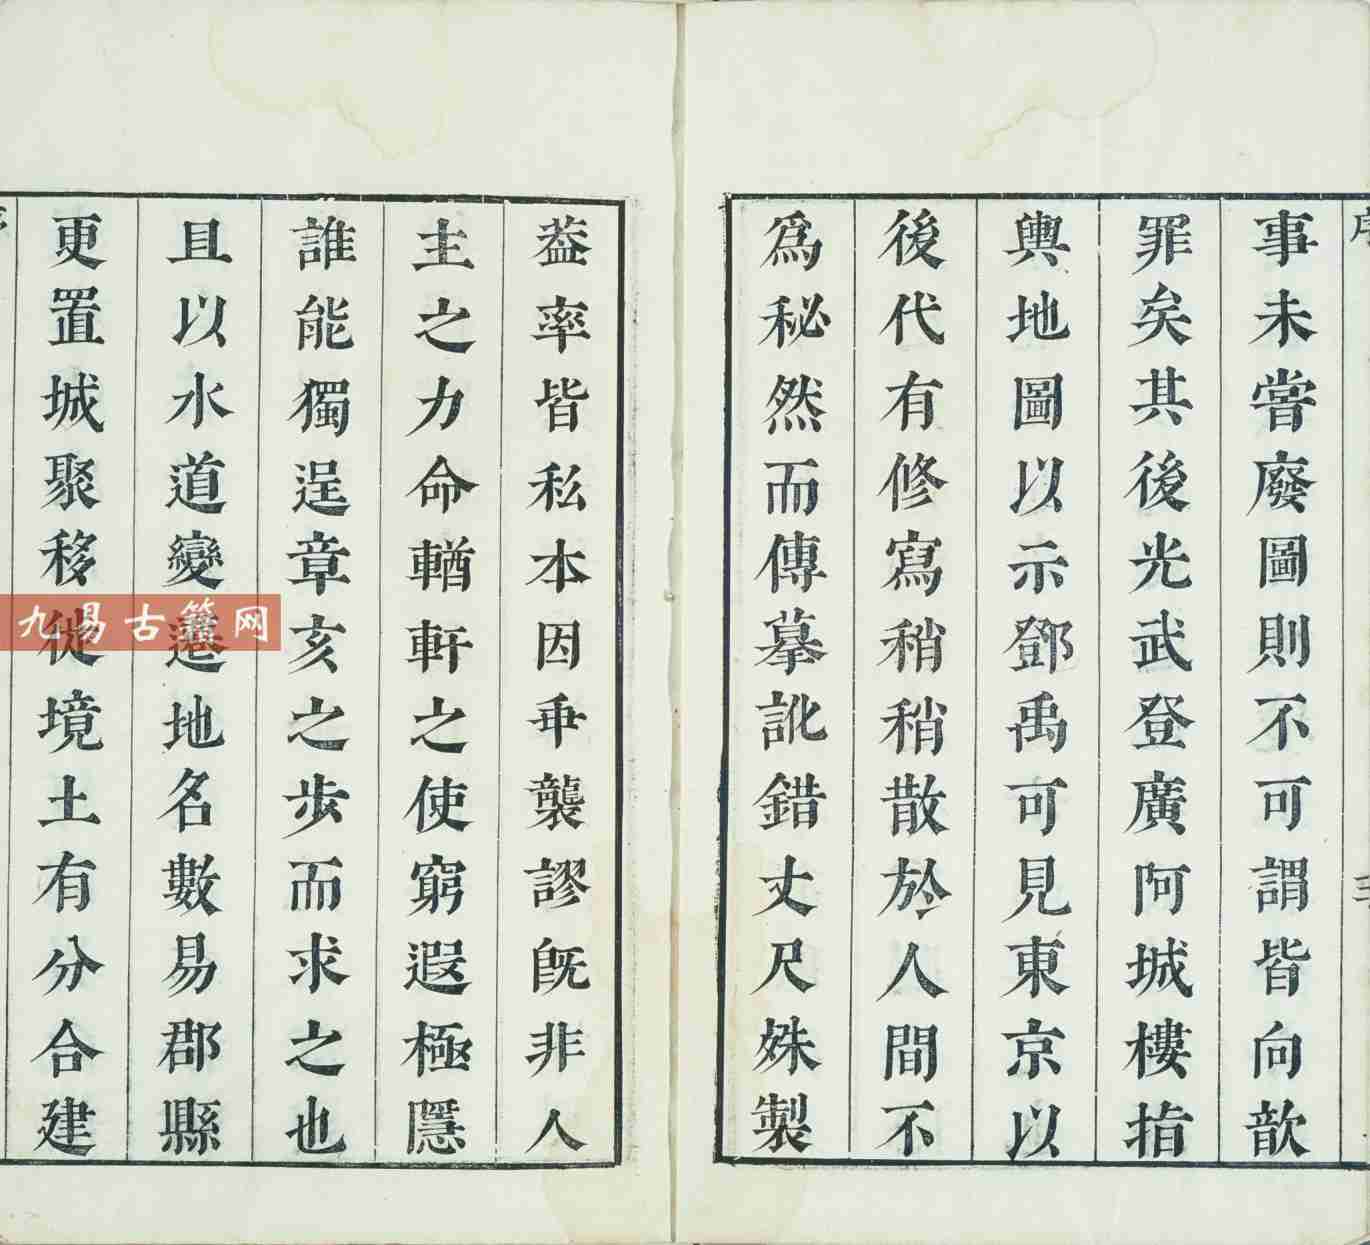 事未甞廢圖則不可謂皆向歆
罪矣其後光武登廣阿城樓指
輿地圖以示鄧禹可見東京以
後代有修寫稍稍散於人間不
爲秘然而傳摹訛錯丈尺姝製
葢率皆私本因乖襲謬旣非人
主之力命輶軒之使窮遐極隱
誰能獨逞章亥之步而求之也
且以水道變遷地名數易郡縣
更置城聚移徙境土有分合建
九易古籍网